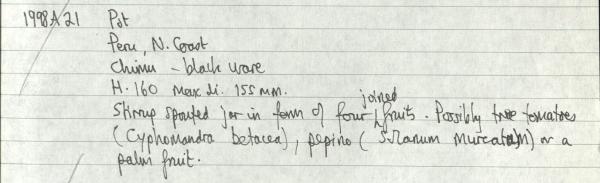 1998A21 Pot
Peru, N. Coast
Chimu - black ware
H. 160 max di. 155 mm.
Stirrup spouted jar in form of four joined fruits. Possibly tree tomatoes
(Cyphomandra betacea), pepino (Solanum muricatum) or a
palm fruit.